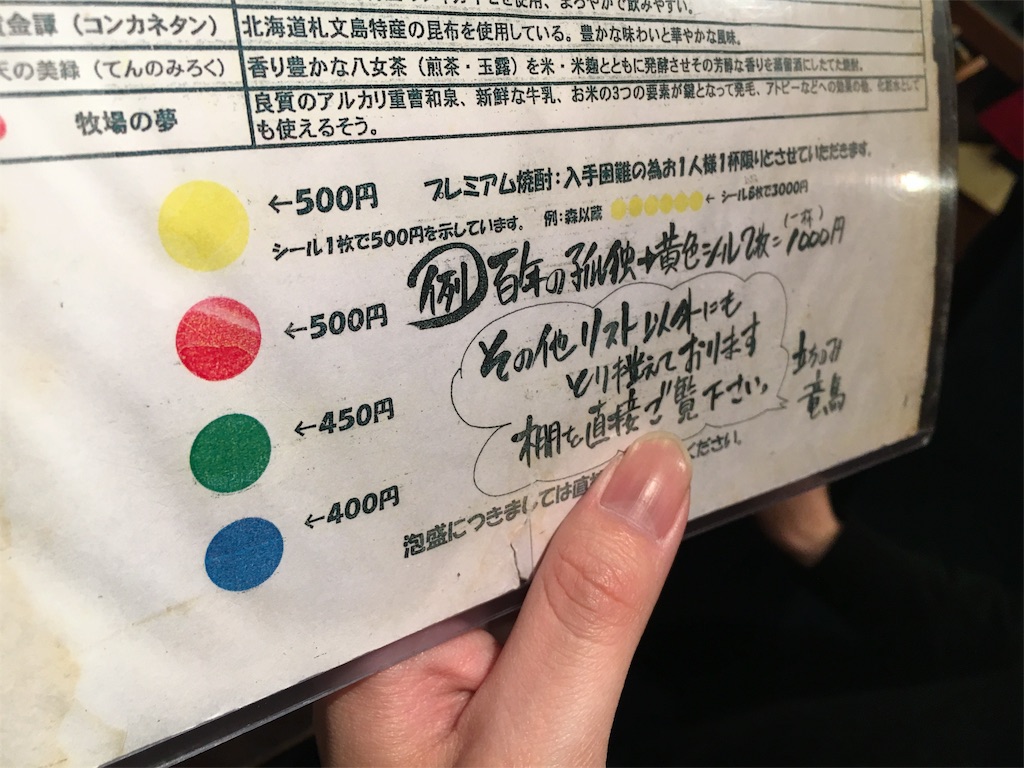 使用、まろやかで飲みやすい。
黄金譚（コンカネタン） 北海道札文島特産の昆布を使用している。豊かな味わいと華やかな風味。
天の美緑（てんのみろく） 香り豊かな八女茶（煎茶・玉露）を米・米麹とともに発酵させその芳醇な香りを蒸留酒にしたてた焼酎。
牧場の夢 良質のアルカリ重曹和泉、新鮮な牛乳、お米の3つの要素が鍵となって発毛、アトピーなどへの効果の他、化粧水として
も使えるそう。
←500円 プレミアム焼酎：入手困難の為お1人様1杯限りとさせていただきます。
シール1枚で500円を示しています。 例：森以蔵 ←シール6枚で3000円
例 百年の孤独→黄色シール2枚=1000円
(一杯)
←500円
その他リスト以外にも
とり揃えております
棚を直接ご覧下さい。
立ちのみ
竜馬
←450円
←400円
泡盛につきましては直接
ください。